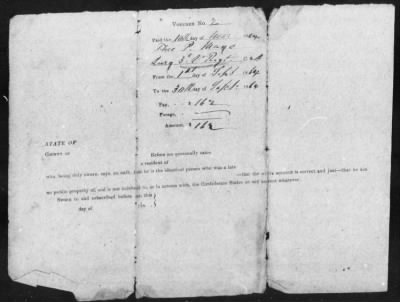 VOUCHER No. 2
Paid the day of 1864
Theo P. Mayo
Surg 3d Va Regt
From the 1st day of Sept 1864
To the 30th day of Sept 1864
Pay, $162
Forage,
Amount, $162
STATE OF
COUNTY OF
Before me personally came
a resident of
who, being duly sworn, says, on oath, that he is the identical person who was a late —that the above account is correct and just—that he has
no public property of, and is not indebted to, or in arrears with, the Confederate States on any account whatever.
Sworn to and subscribed before me this
day of 186 .